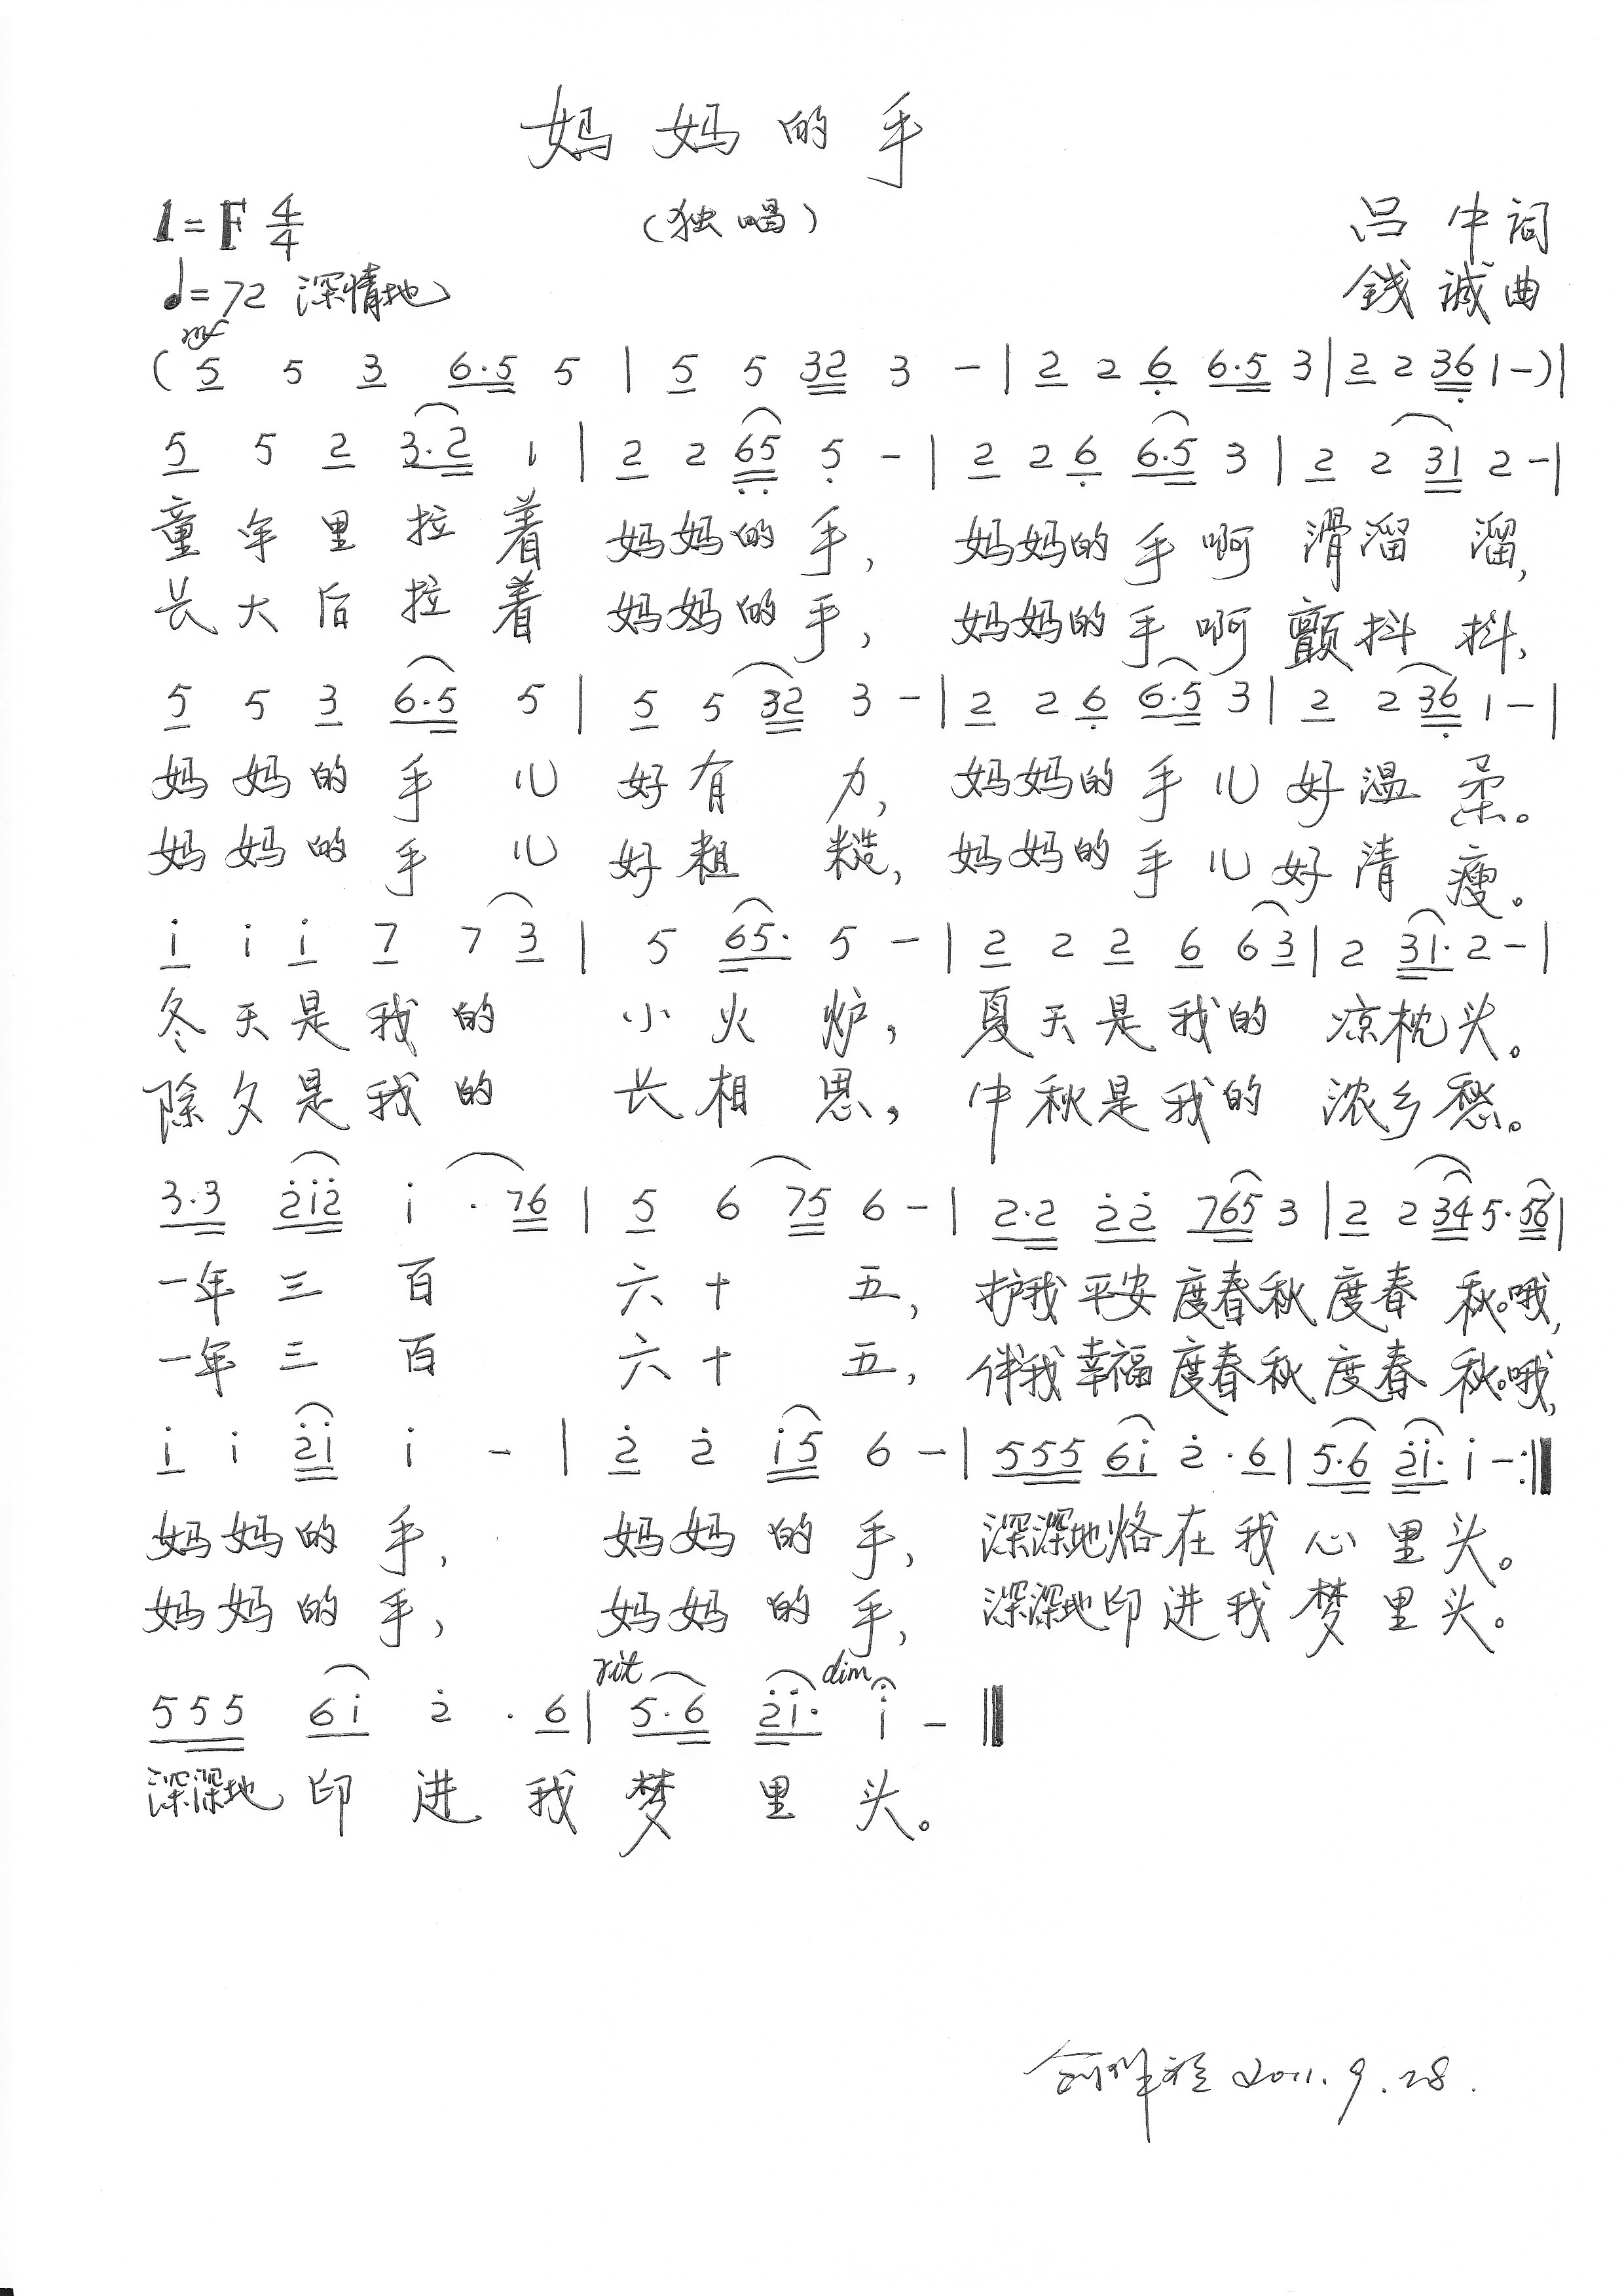 妈妈的手
1=F 4/4 （独唱） 吕中词
♩=72 深情地 錢诚曲
mf
( 5 5 3 6·5 5 | 5 5 32 3 - | 2 2 6 6·5 3 | 2 2 36 1 - ) |
5 5 2 3·2 1 | 2 2 65 5 - | 2 2 6 6·5 3 | 2 2 31 2 - |
童年里拉着 妈妈的手， 妈妈的手啊 滑溜溜，
长大后拉着 妈妈的手， 妈妈的手啊 颤抖抖，
5 5 3 6·5 5 | 5 5 32 3 - | 2 2 6 6·5 3 | 2 2 36 1 - |
妈妈的手儿 好有力， 妈妈的手儿 好温柔。
妈妈的手儿 好粗糙， 妈妈的手儿 好清瘦。
i i i 7 7 3 | 5 65· 5 - | 2 2 2 6 6 3 | 2 31· 2 - |
冬天是我的 小火炉， 夏天是我的 凉枕头。
除夕是我的 长相思， 中秋是我的 浓乡愁。
3·3 2̇i2̇ i · 76 | 5 6 75 6 - | 2·2 2̇2̇ 765 3 | 2 2 34 5·56 |
一年三百 六十五， 护我平安度春秋度春秋。哦，
一年三百 六十五， 伴我幸福度春秋度春秋。哦，
i i 2̇i i - | 2̇ 2̇ i5 6 - | 555 6i 2̇ · 6 | 5·6 2̇i· i - :‖
妈妈的手， 妈妈的手， 深深地烙在我心里头。
妈妈的手， 妈妈的手， 深深地印进我梦里头。
rit dim
555 6i 2̇ · 6 | 5·6 2̇i· i - ‖
深深地印进我梦里头。
2011.9.28.